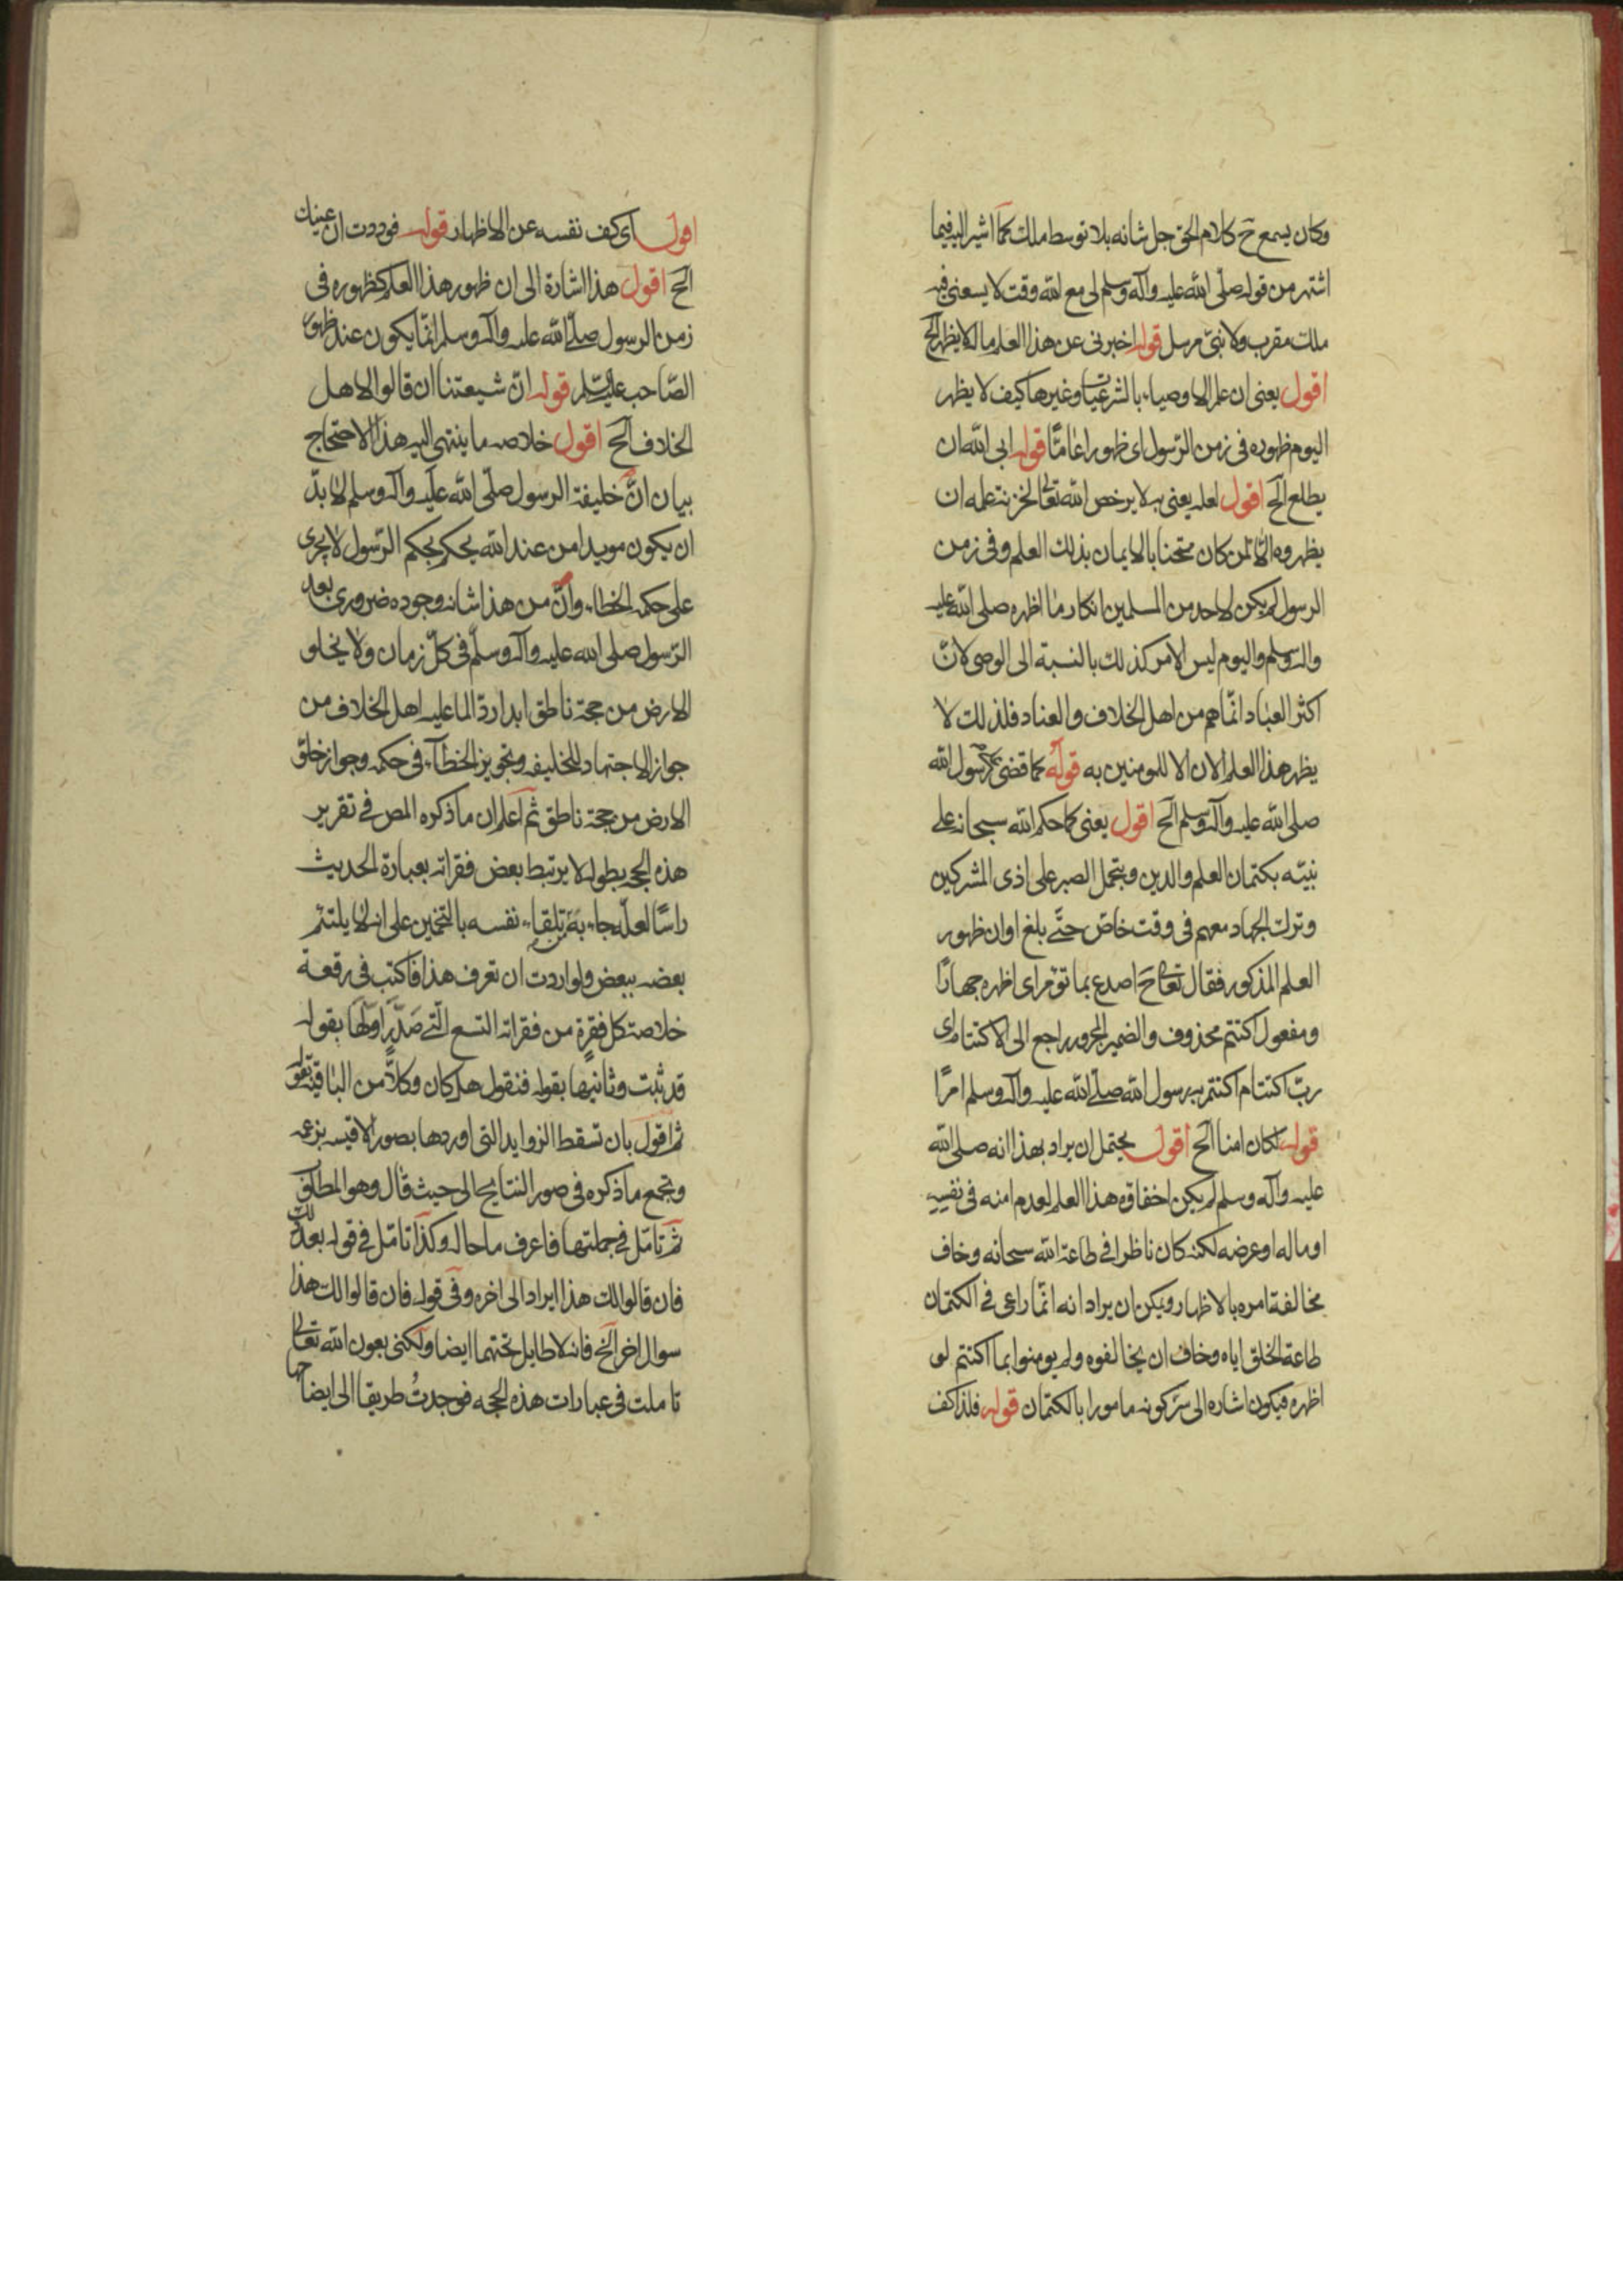 وكان يسمع ح كلام الحق جل شانه بلا توسط ملك كما اشير اليه فيما
اشتهر من قوله صلّى الله عليه وآله وسلم لى مع الله وقت لا يسعنى فيه
ملك مقرب ولا نبىّ مرسل قوله اخبرنى عن هذا العلم ما له لا يظهر الخ
اقول يعنى ان علم الاوصياء بالشرعيات وغيرها كيف لا يظهر
اليوم ظهوره فى زمن الرّسول اى ظهورا عامّا قوله ابى الله ان
يطلع الخ اقول لعله يعنى به لا يرخص الله تعالى لخزنة علمه ان
يظهروه الّا لمن كان ممتحنا بالايمان بذلك العلم وفى زمن
الرسول لم يكن لاحد من المسلمين انكار ما اظهره صلى الله عليه
وآله وسلم واليوم ليس الامر كذلك بالنسبة الى الوصى لانّ
اكثر العباد انّما هم من اهل الخلاف والعناد فلذلك لا
يظهر هذا العلم الان الا للمومنين به قوله كما قضى على رسول الله
صلى الله عليه وآله وسلم الخ اقول يعنى كما حكم الله سبحانه على
نبيّه بكتمان العلم والدين وبتحمل الصبر على اذى المشركين
وترك الجهاد معهم فى وقت خاصّ حتّى بلغ اوان ظهور
العلم المذكور فقال تعالى ح اصدع بما تؤمر اى اظهره جهارًا
ومفعول اكتتم محذوف والضمير المجرور راجع الى الاكتتام اى
ربّ اكتتام اكتتم به رسول الله صلّى الله عليه وآله وسلم امرًا
قوله لكان امنا الخ اقول يحتمل ان يراد بهذا انه صلى الله
عليه وآله وسلم لم يكن اخفاؤه هذا العلم لعدم امنه فى نفسه
او ماله او عرضه لكنه كان ناظرا فى طاعة الله سبحانه وخاف
مخالفة امره بالاظهار ويمكن ان يراد انه انّما راعى فى الكتمان
طاعة الخلق اياه وخاف ان يخالفوه ولم يومنوا بما اكتتم لو
اظهره فيكون اشاره الى سرّ كونه مامورا بالكتمان قوله فلذا كف
اقول اى كف نفسه عن الاظهار قوله فوددت ان عينيك
الخ اقول هذا اشارة الى ان ظهور هذا العلم كظهوره فى
زمن الرسول صلّى الله عليه وآله وسلم انّما يكون عند ظهور
الصّاحب عليه السّلم قوله انّ شيعتنا ان قالوا لاهل
الخلاف الخ اقول خلاصه ما ينتهى اليه هذا الاحتجاج
بيان انّ خليفة الرسول صلّى الله عليه وآله وسلم لا بدّ
ان يكون مويدا من عند الله يحكم بحكم الرّسول لا يجرى
على حكمه الخطاء وانّ من هذا شانه وجوده ضرورى بعد
الرّسول صلى الله عليه وآله وسلّم فى كلّ زمان ولا يخلو
الارض من حجة ناطق ابدا ردّا لما عليه اهل الخلاف من
جواز الاجتهاد للخليفه وتجويز الخطاء فى حكمه وجواز خلوّ
الارض من حجة ناطق ثم اعلم ان ما ذكره المص فى تقرير
هذه الحجه بطوله لا يرتبط بعض فقراته بعبارة الحديث
راسًا لعلّه جاء به من تلقاء نفسه بالتخمين على انه لا يلتئم
بعضه ببعض ولو اردت ان تعرف هذا فاكتب فى رقعة
خلاصة كل فقرة من فقراته التسع الّتى صدّر اولها بقوله
قد ثبت وثانيها بقوله فنقول هل كان وكلّا من الباقية بقوله
ثم اقول بان تسقط الزوايد التى اوردها بصور الاقيسه بزعمه
وتجمع ما ذكره فى صور النتايج الى حيث قال وهو المطلوب
ثم تامّل فى جملتها فاعرف ما حاله وكذا تامّل فى قوله بعد ذلك
فان قالوا لك هذا ايراد الى اخره وفى قوله فان قالوا لك هذا
سوال اخر الخ فانه لا طايل تحتهما ايضا ولكنى بعون الله تعالى
تاملت فى عبارات هذه الحجه فوجدتُ طريقا الى ايضاحها